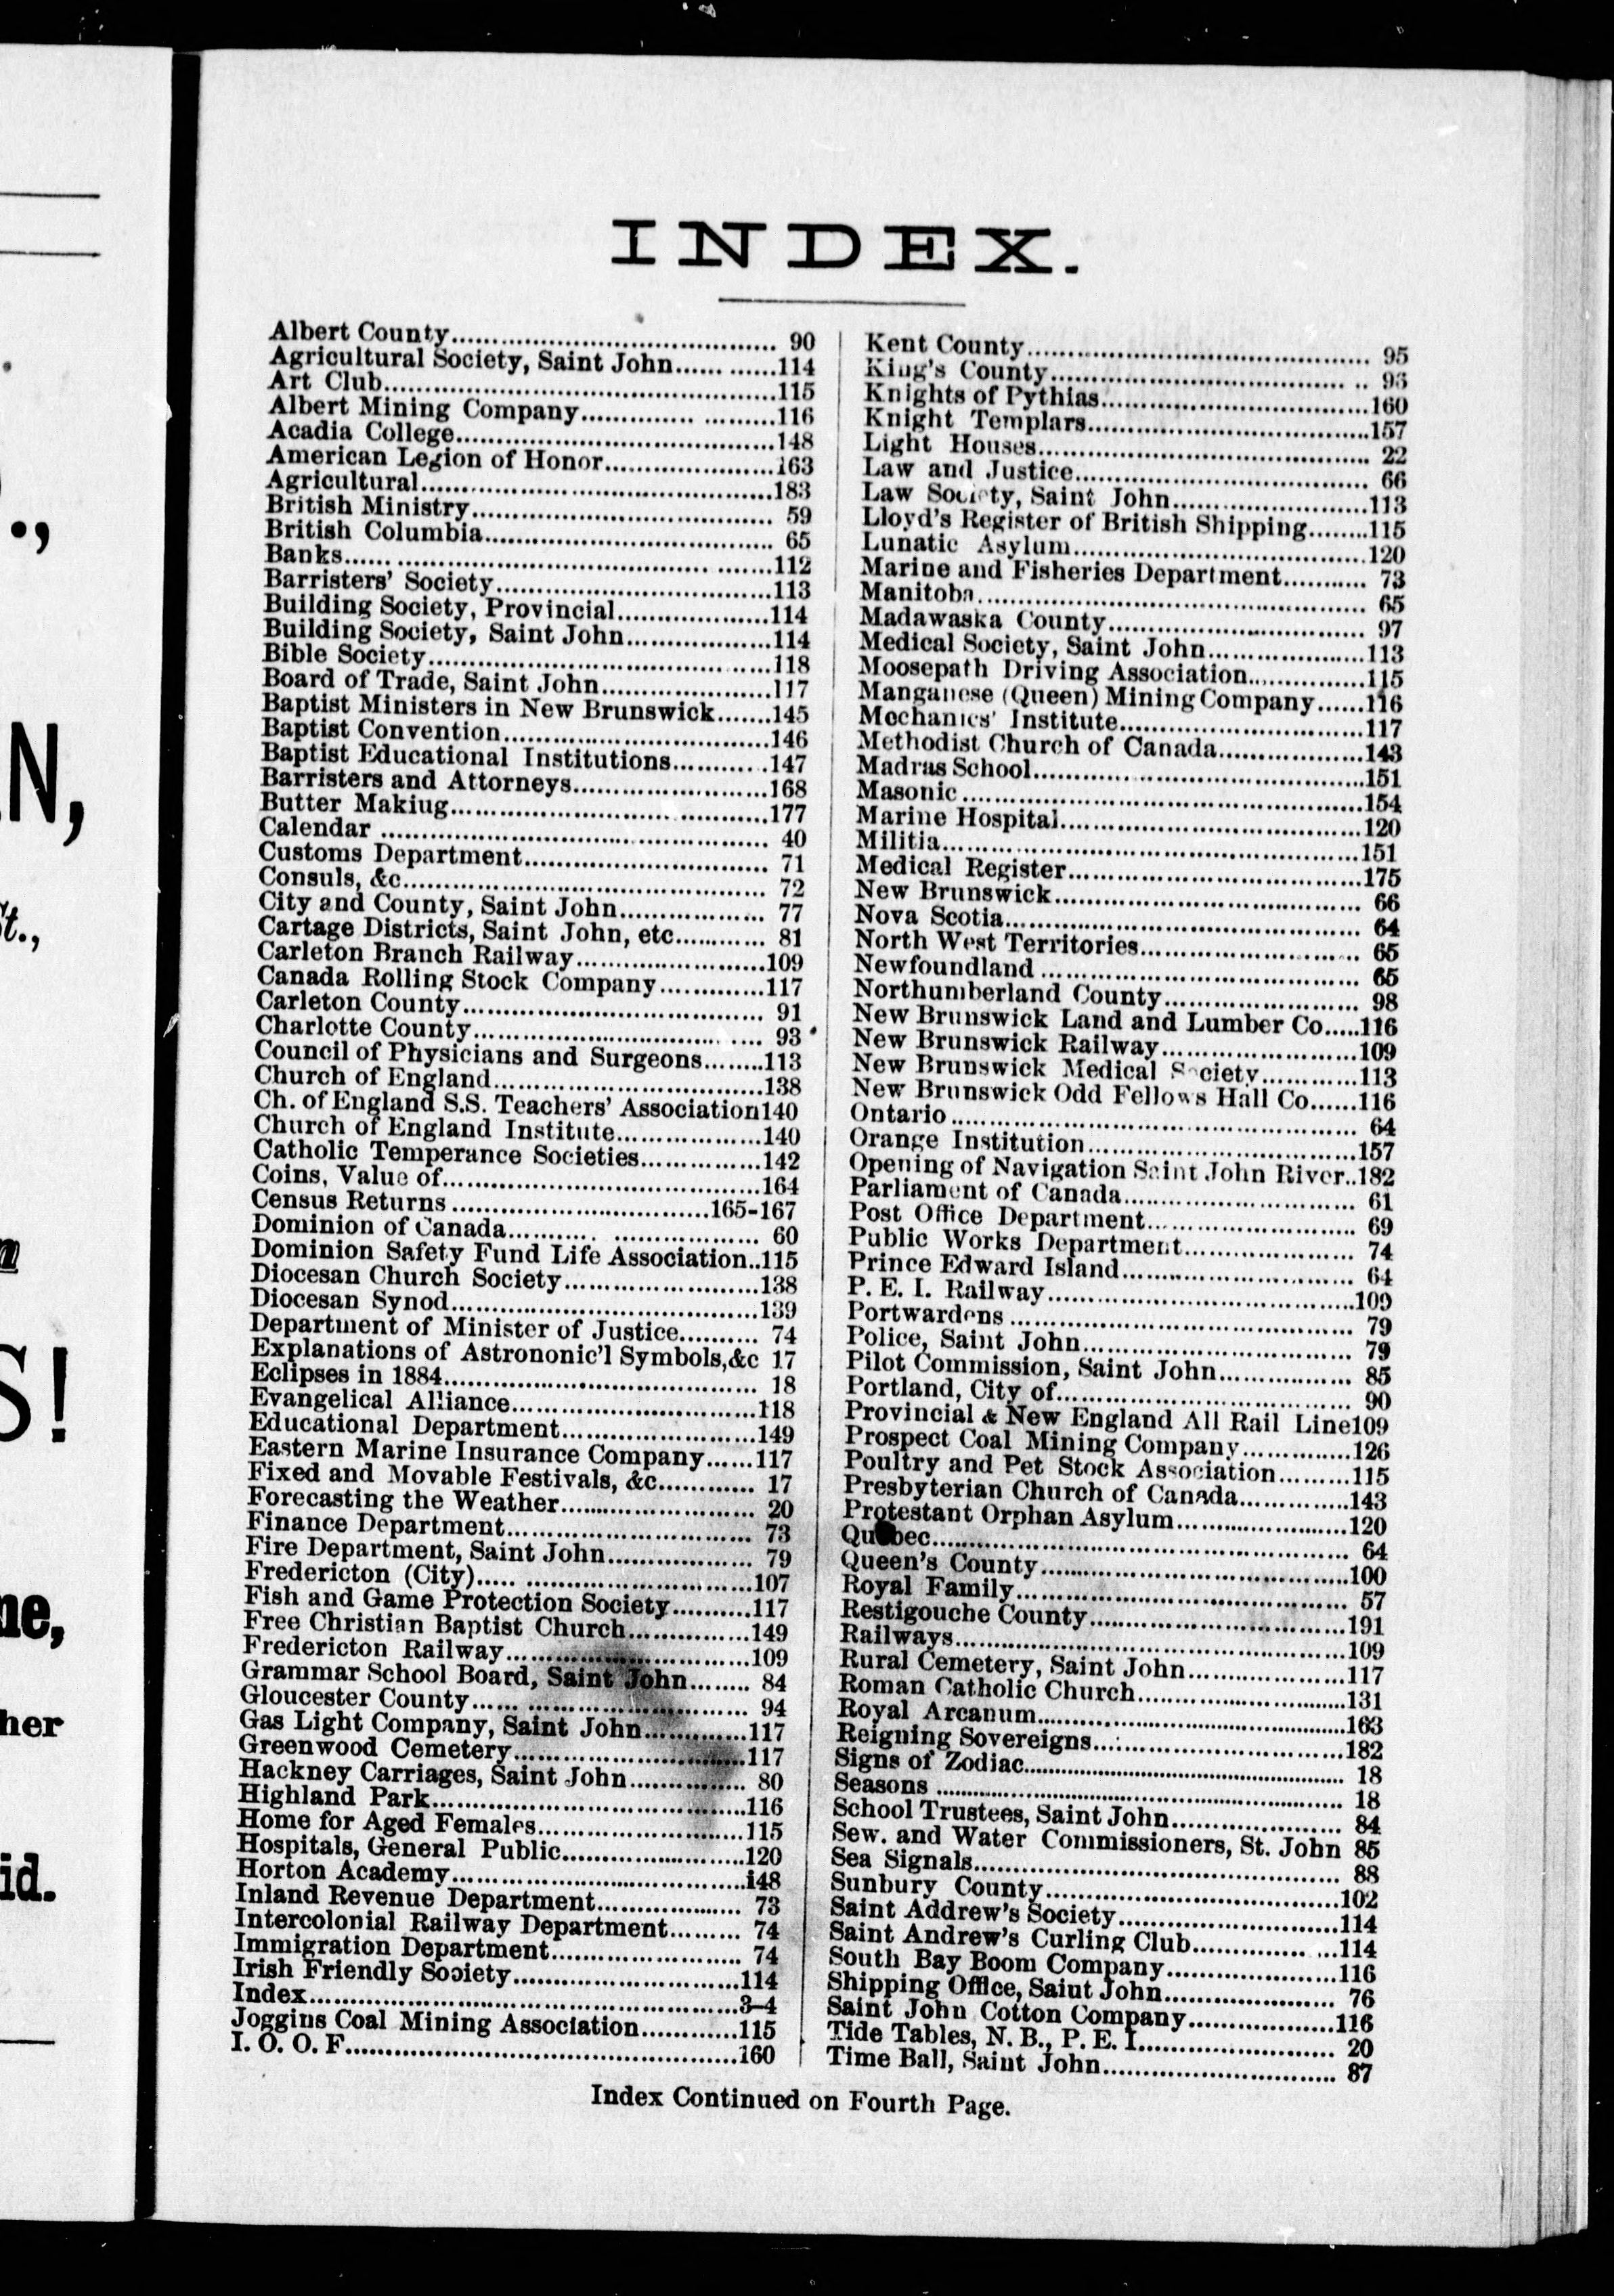 .,
N,
St.,
n
S!
ne,
her
id.
INDEX.
Albert County........ 90
Agricultural Society, Saint John........114
Art Club........115
Albert Mining Company........116
Acadia College........148
American Legion of Honor........163
Agricultural........183
British Ministry........ 59
British Columbia........ 65
Banks........112
Barristers' Society........113
Building Society, Provincial........114
Building Society, Saint John........114
Bible Society........118
Board of Trade, Saint John........117
Baptist Ministers in New Brunswick........145
Baptist Convention........146
Baptist Educational Institutions........147
Barristers and Attorneys........168
Butter Makiug........177
Calendar ........ 40
Customs Department........ 71
Consuls, &c........ 72
City and County, Saint John........ 77
Cartage Districts, Saint John, etc........ 81
Carleton Branch Railway........109
Canada Rolling Stock Company........117
Carleton County........ 91
Charlotte County........ 93
Council of Physicians and Surgeons........113
Church of England........138
Ch. of England S.S. Teachers' Association140
Church of England Institute........140
Catholic Temperance Societies........142
Coins, Value of........164
Census Returns........165-167
Dominion of Canada........ 60
Dominion Safety Fund Life Association..115
Diocesan Church Society........138
Diocesan Synod........139
Department of Minister of Justice........ 74
Explanations of Astrononic'l Symbols,&c 17
Eclipses in 1884........ 18
Evangelical Alliance........118
Educational Department........149
Eastern Marine Insurance Company......117
Fixed and Movable Festivals, &c........ 17
Forecasting the Weather........ 20
Finance Department........ 73
Fire Department, Saint John........ 79
Fredericton (City)........107
Fish and Game Protection Society........117
Free Christian Baptist Church........149
Fredericton Railway........109
Grammar School Board, Saint John........ 84
Gloucester County........ 94
Gas Light Company, Saint John........117
Greenwood Cemetery........117
Hackney Carriages, Saint John........ 80
Highland Park........116
Home for Aged Females........115
Hospitals, General Public........120
Horton Academy........148
Inland Revenue Department........ 73
Intercolonial Railway Department........ 74
Immigration Department........ 74
Irish Friendly Society........114
Index........3-4
Joggins Coal Mining Association........115
I. O. O. F........160
Kent County........ 95
King's County........ 96
Knights of Pythias........160
Knight Templars........157
Light Houses........ 22
Law and Justice........ 66
Law Society, Saint John........113
Lloyd's Register of British Shipping........115
Lunatic Asylum........120
Marine and Fisheries Department........ 73
Manitoba........ 65
Madawaska County........ 97
Medical Society, Saint John........113
Moosepath Driving Association........115
Manganese (Queen) Mining Company......116
Mechanics' Institute........117
Methodist Church of Canada........143
Madras School........151
Masonic........154
Marine Hospital........120
Militia........151
Medical Register........175
New Brunswick........ 66
Nova Scotia........ 64
North West Territories........ 65
Newfoundland ........ 65
Northumberland County........ 98
New Brunswick Land and Lumber Co.....116
New Brunswick Railway........109
New Brunswick Medical Society........113
New Brunswick Odd Fellows Hall Co......116
Ontario ........ 64
Orange Institution........157
Opening of Navigation Saint John River..182
Parliament of Canada........ 61
Post Office Department........ 69
Public Works Department........ 74
Prince Edward Island........ 64
P. E. I. Railway........109
Portwardens ........ 79
Police, Saint John........ 79
Pilot Commission, Saint John........ 85
Portland, City of........ 90
Provincial & New England All Rail Line109
Prospect Coal Mining Company........126
Poultry and Pet Stock Association........115
Presbyterian Church of Canada........143
Protestant Orphan Asylum........120
Quebec........ 64
Queen's County........100
Royal Family........ 57
Restigouche County........191
Railways........109
Rural Cemetery, Saint John........117
Roman Catholic Church........131
Royal Arcanum........163
Reigning Sovereigns........182
Signs of Zodiac........ 18
Seasons ........ 18
School Trustees, Saint John........ 84
Sew. and Water Commissioners, St. John 85
Sea Signals........ 88
Sunbury County........102
Saint Addrew's Society........114
Saint Andrew's Curling Club........114
South Bay Boom Company........116
Shipping Office, Saint John........ 76
Saint John Cotton Company........116
Tide Tables, N. B., P. E. I........ 20
Time Ball, Saint John........ 87
Index Continued on Fourth Page.